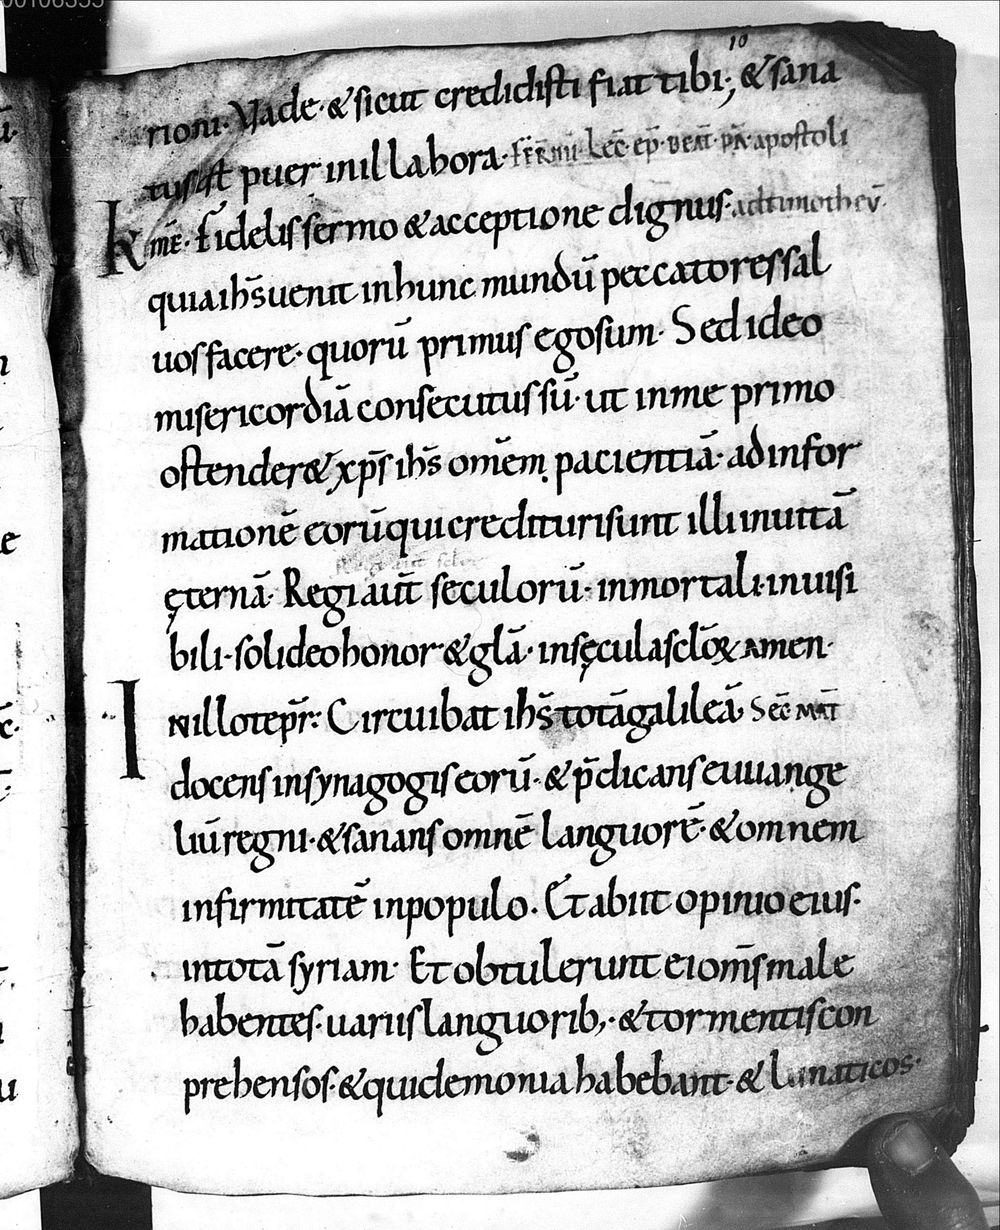 00106355
10
rioni· Vade· &sicut credidisti fiat tibi; &sana
tus ÷ puer inilla bora· FER̄ IIII· Lec̄ ep̄ BEAT̄· PA̅· apostoli
K̄mē· Fidelis sermo &acceptione dignus· adtimotheū·
quia ih̄s uenit inhunc mundū peccatores sal
uos facere· quorū primus ego sum· Sed ideo
misericordiā consecutus sū· ut inme primo
ostender& xp̄s ih̄s om̄em pacientiā· ad infor
mationē eorū qui credituri sunt illi inuitā
ęternā· Regi aut̄ seculorū· inmortali· inuisi
bili· soli deo honor &gl̄a· insęcula scl̄oꝝ AMEN·
INillo tep̄r· Circuibat ih̄s totā galileā· Sec̄ MAT̄
docens insynagogis eorū· &p̄dicans euuange
liū regni· &sanans omnē languorē· &omnem
infirmitatē inpopulo. Et abiit opinio eius·
intotā syriam· Et obtulerunt ei om̄s male
habentes· uariis languorib;· &tormentis con
prehensos· &qui demonia habebant· &lunaticos·